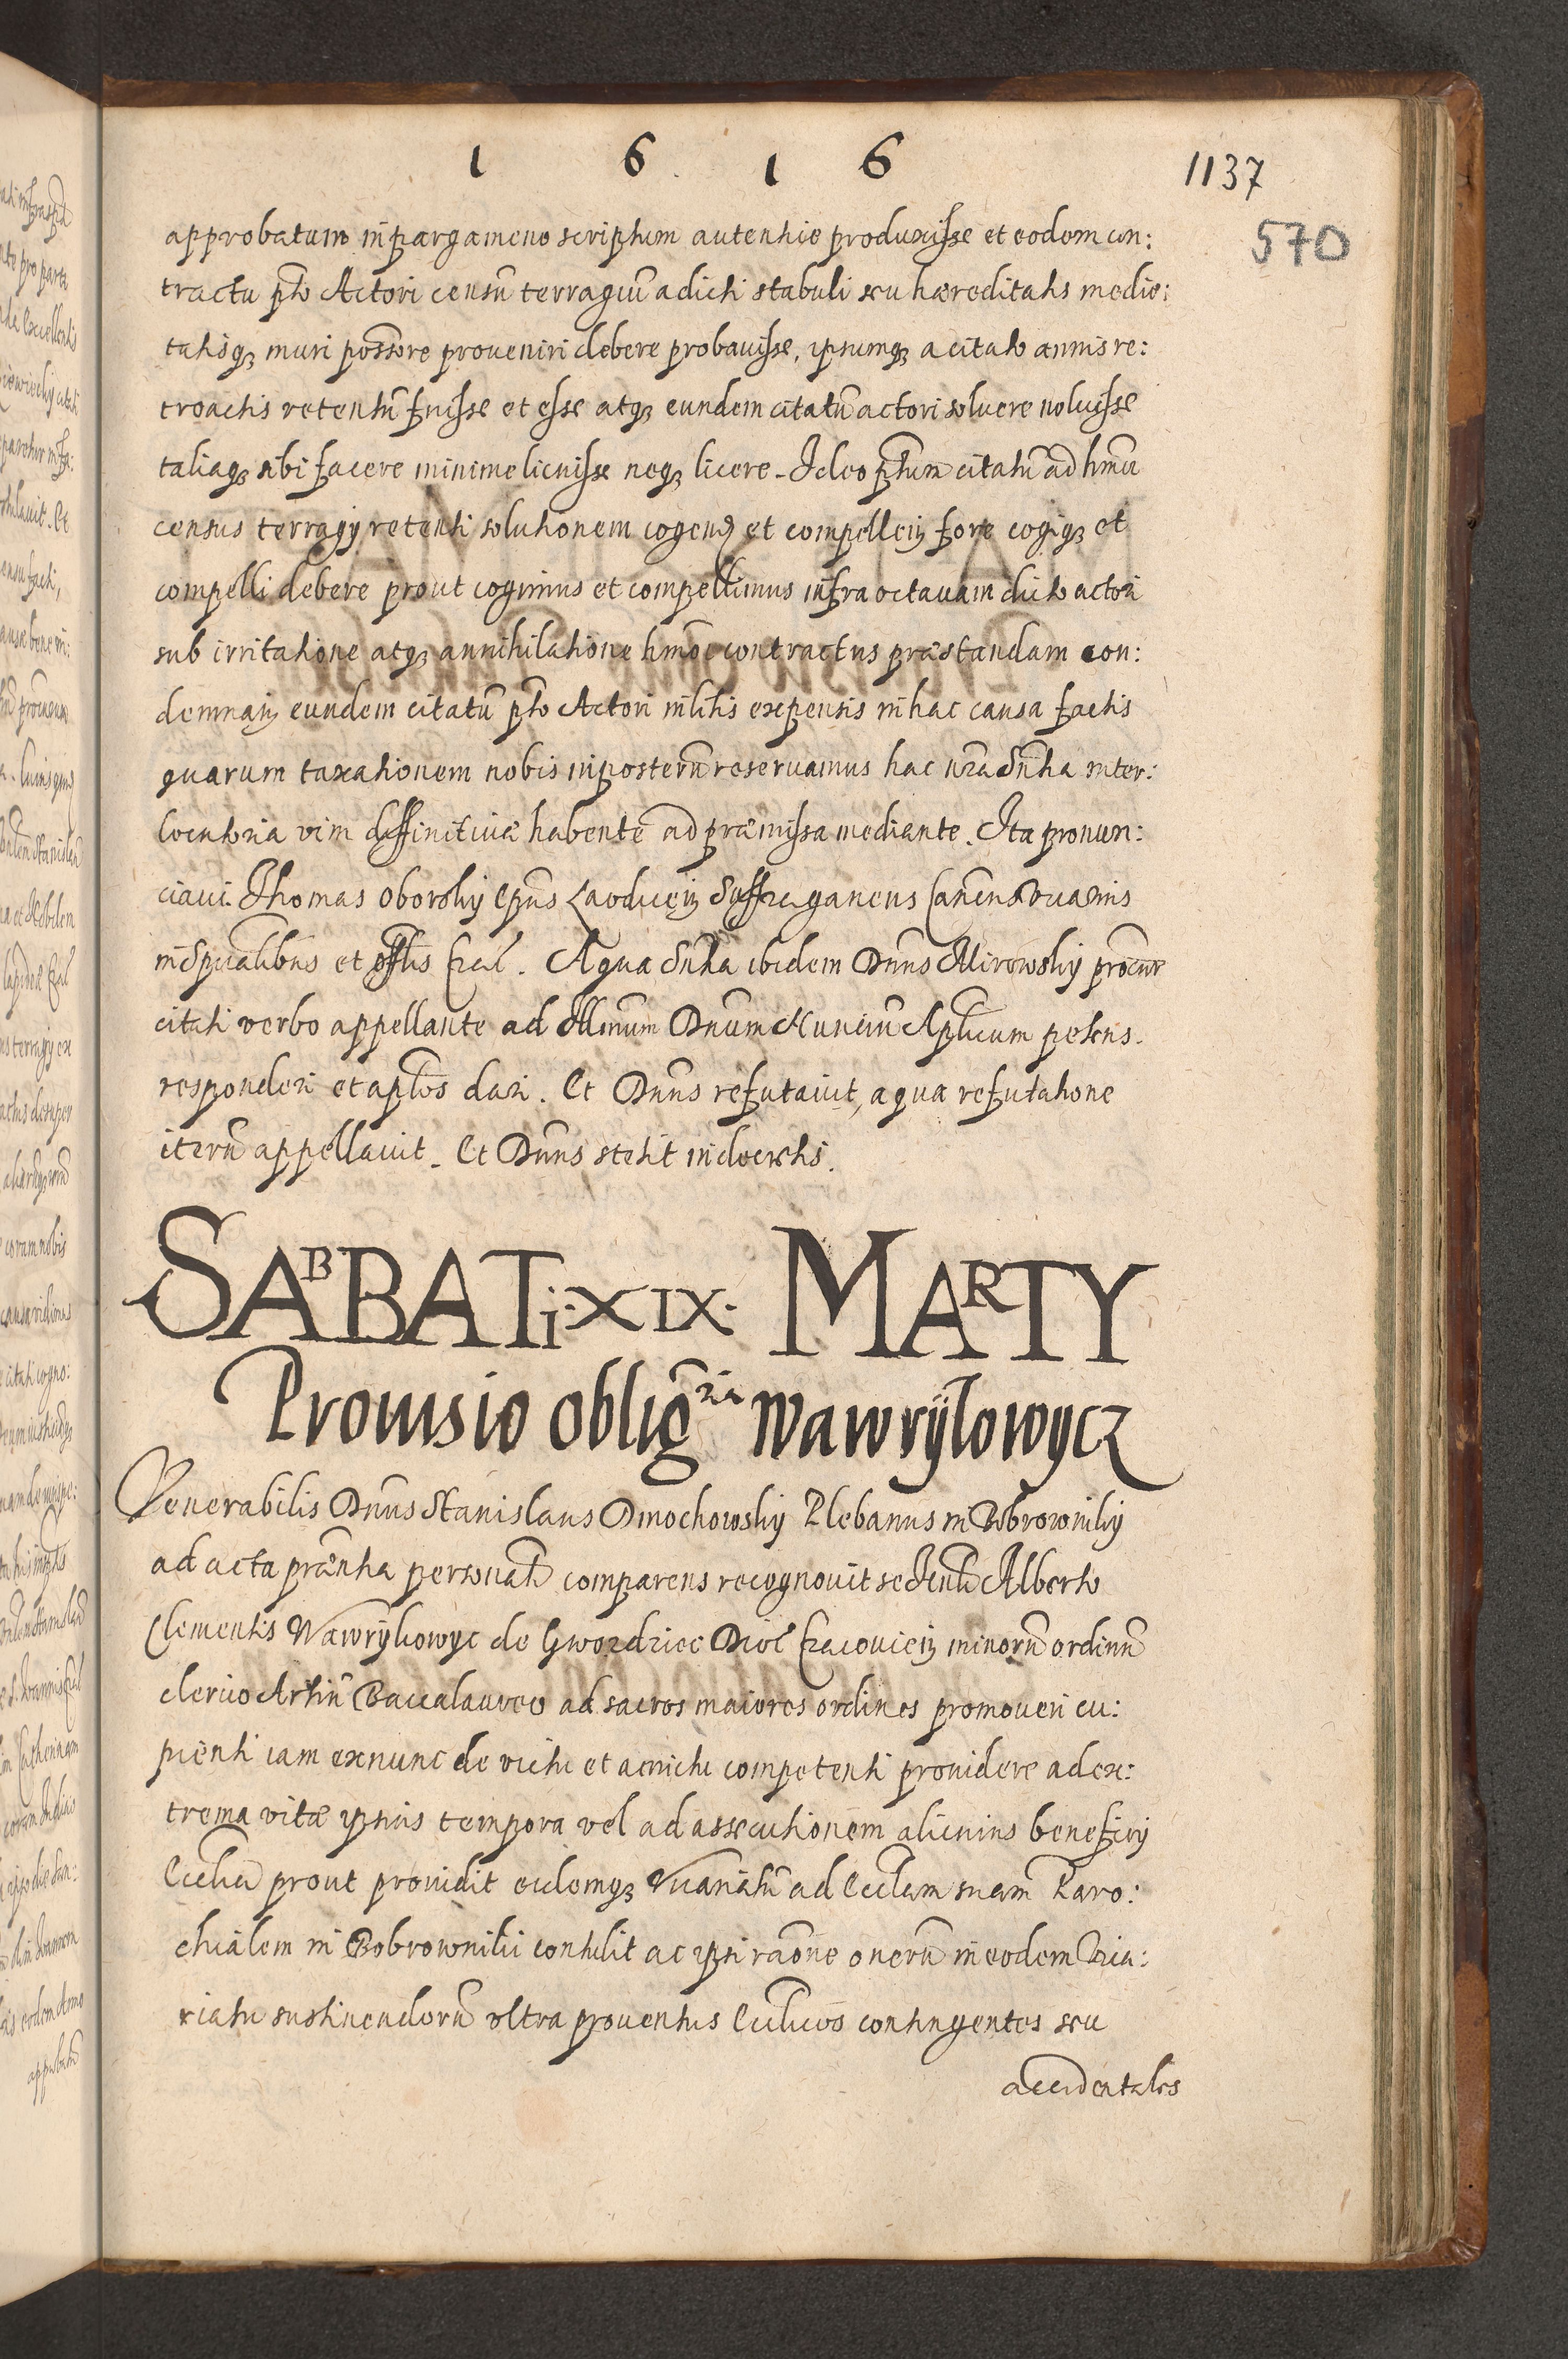 1 6 1 6
1137
570
approbatum in pargameno scriptum autentice produxisse et eodem con:
tractu pto Actori censu terragiu a dicti stabuli seu hæreditatis medie:
tatisq muri possore proveniri debere probavisse, ipsumq a citato annis re:
troactis retentu fuisse et esse atq eundem citatu actori soluere noluisse
taliaq sibi facere minime licuisse neq licere. Ideo ptum citatu ad hmoi
census terragy retenti solutionem cogend et compellen fore cogiq et
compelli debere prout cogimus et compellimus infra octauam dicto actori
sub irritatione atq annihilatione hmoi contractus præstandam con:
demnan eundem citatu pto Actori in litis expensis in hac causa factis
quarum taxationem nobis in posteru reseruamus hac nra snha inter:
locutoria vim diffinitiuæ habente ad præmissa mediante. Ita pronun:
ciaui. Thomas Oborsky Epus Laodicen Suffraganeus Canens Vicarius
in Spualibus et offlis Cracl. A qua snha ibidem Dnus Mirowsky procur
citati verbo appellante ad Illmum Dnum Nunciu Aplicum petens.
responderi et aplos dari. Et Dnus refutauit, a qua refutatione
iteru appellauit. Et Dnus stetit in decretis.
SABBATi·XIX· MARTY
Prouisio oblig ria Wawryłowycz
Venerabilis Dnus Stanislaus Dmochowsky Plebanus in Bobrowniky
ad acta prænha personalr comparens recognouit se Alberto
Clementis Wawryłowyc de Gwozdziec Dioc Cracovien minoru ordinu
clerico Artiu Baccalaureo ad sacros maiores ordines promoueri cu:
pienti iam ex nunc de victu et amictu competenti prouidere ad ex:
trema vitæ ipsius tempora vel ad assecutionem alicuius beneficij
Ecclici prout prouidit eidemq Vicariatu ad Ecclam suam Paro:
chialem in Bobrowniki contulit ac ipsi raone oneru in eodem Vica:
riatu sustinendoru vltra prouentus Ecclicos contingentes seu
accidentales